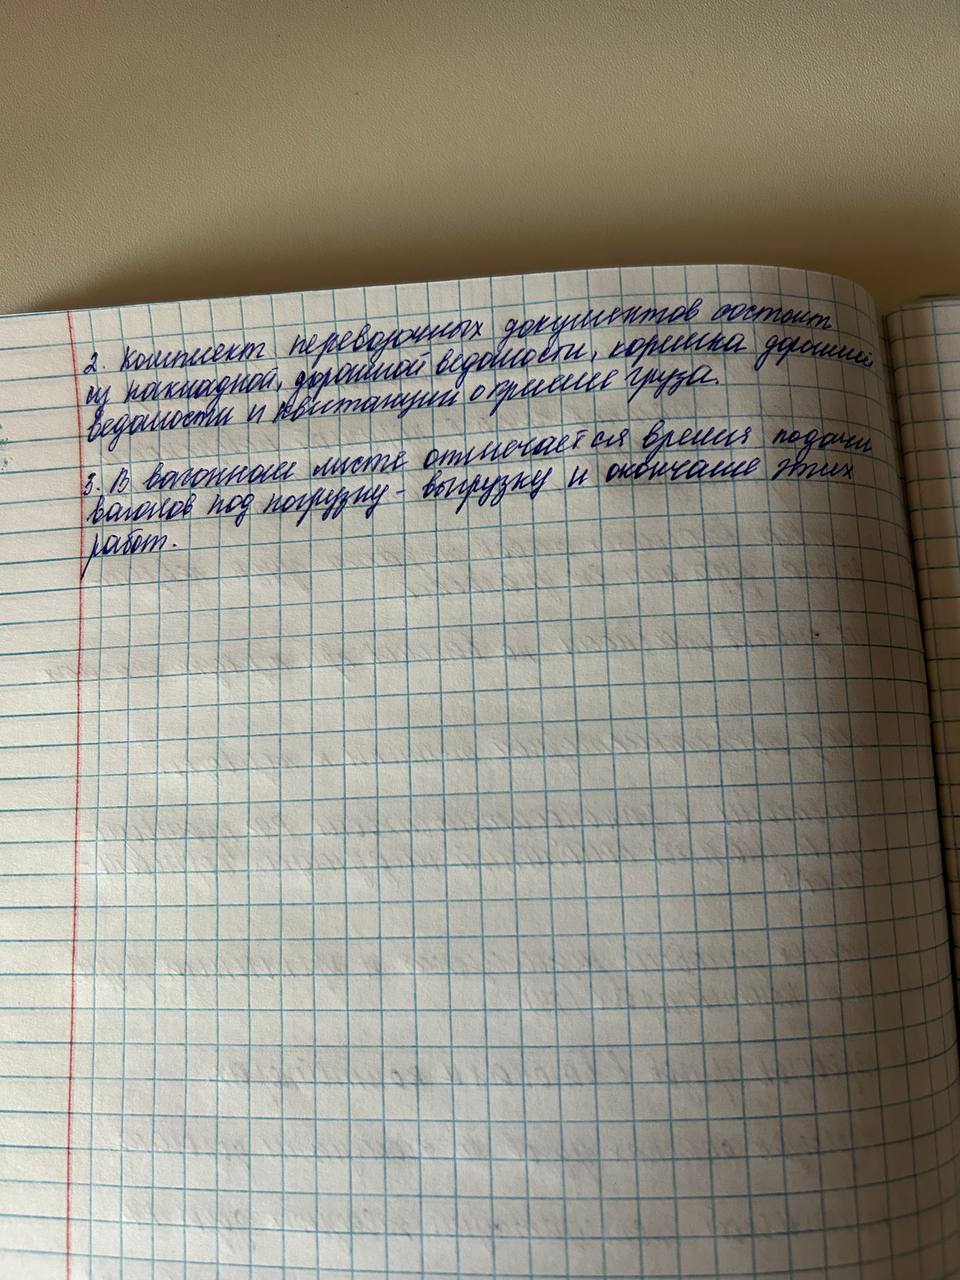 2. Комплект перевозочных документов состоит
из накладной, дорожной ведомости, корешка дорожной
ведомости и квитанции о приеме груза.
3. В вагонном листе отмечается время подачи
вагонов под погрузку - выгрузку и окончание этих
работ.